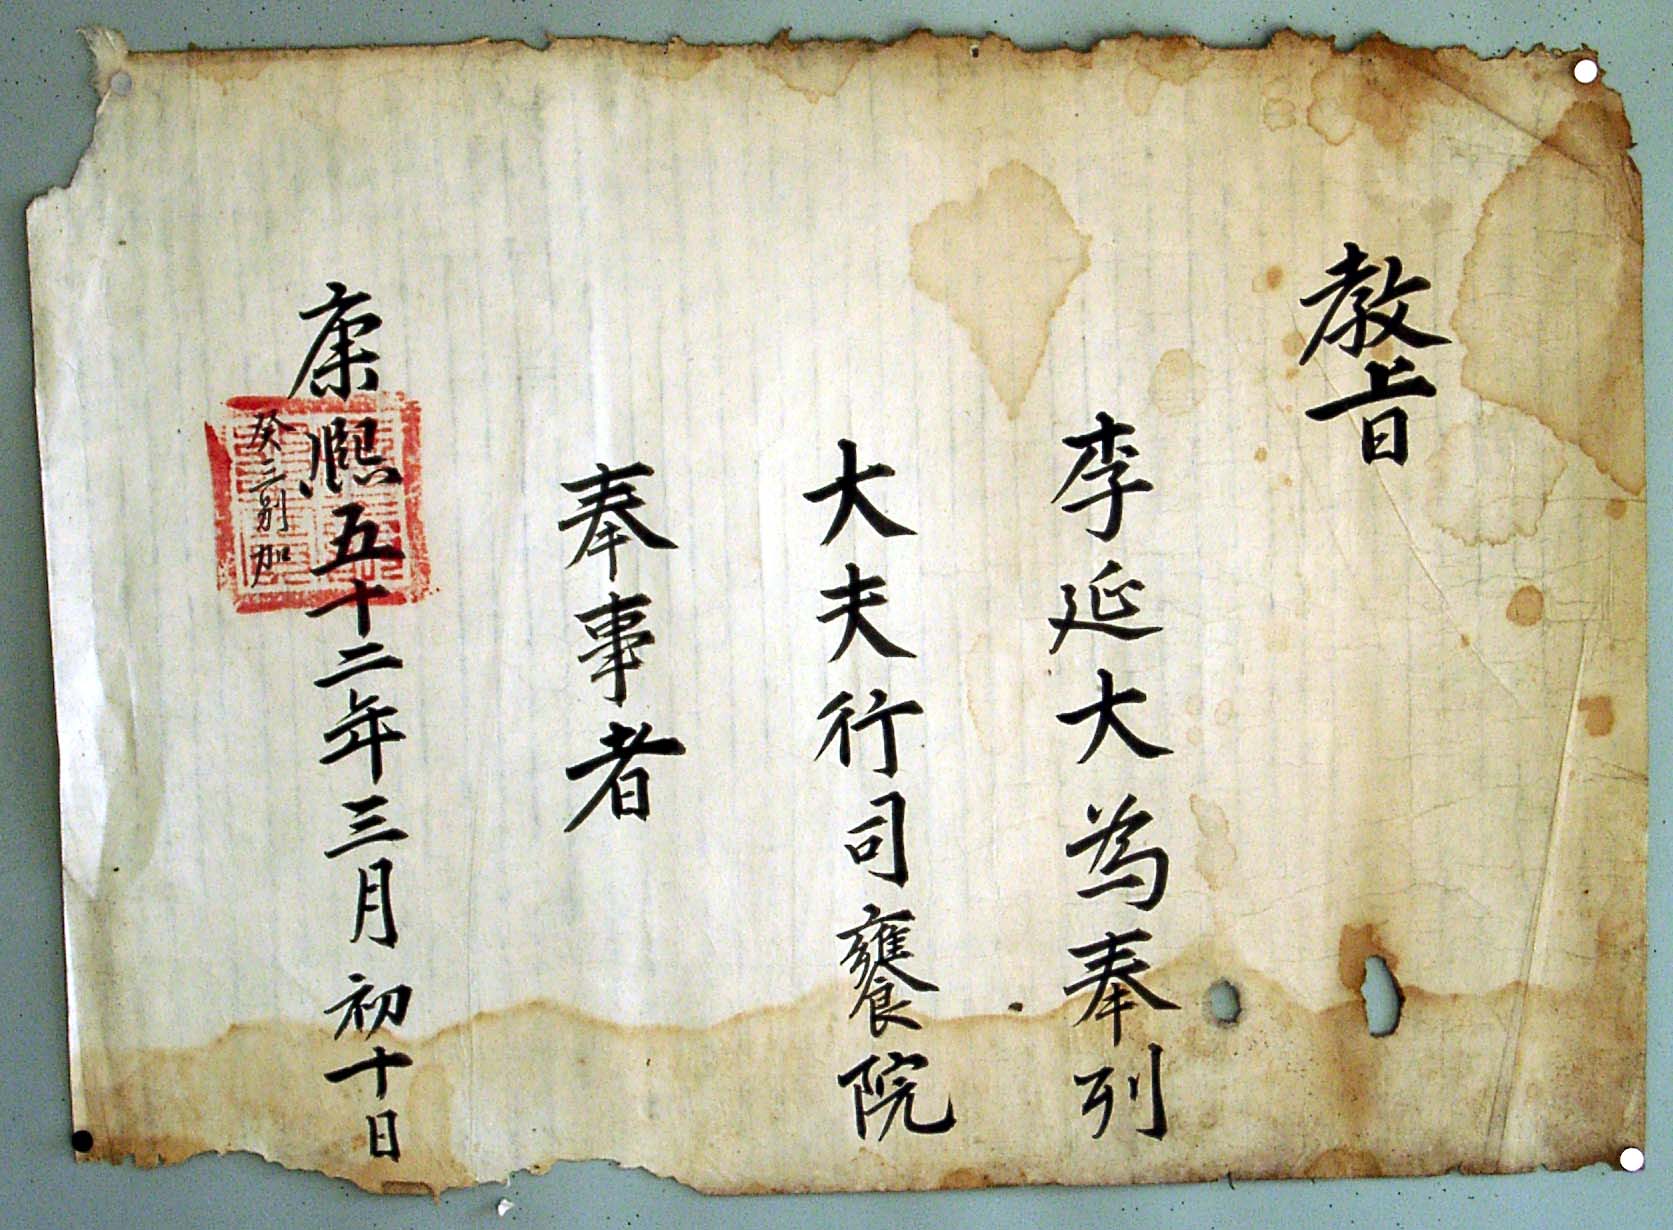 教旨
李延大為奉列
大夫行司饔院
奉事者
康熙五十二年三月初十日
癸二別加